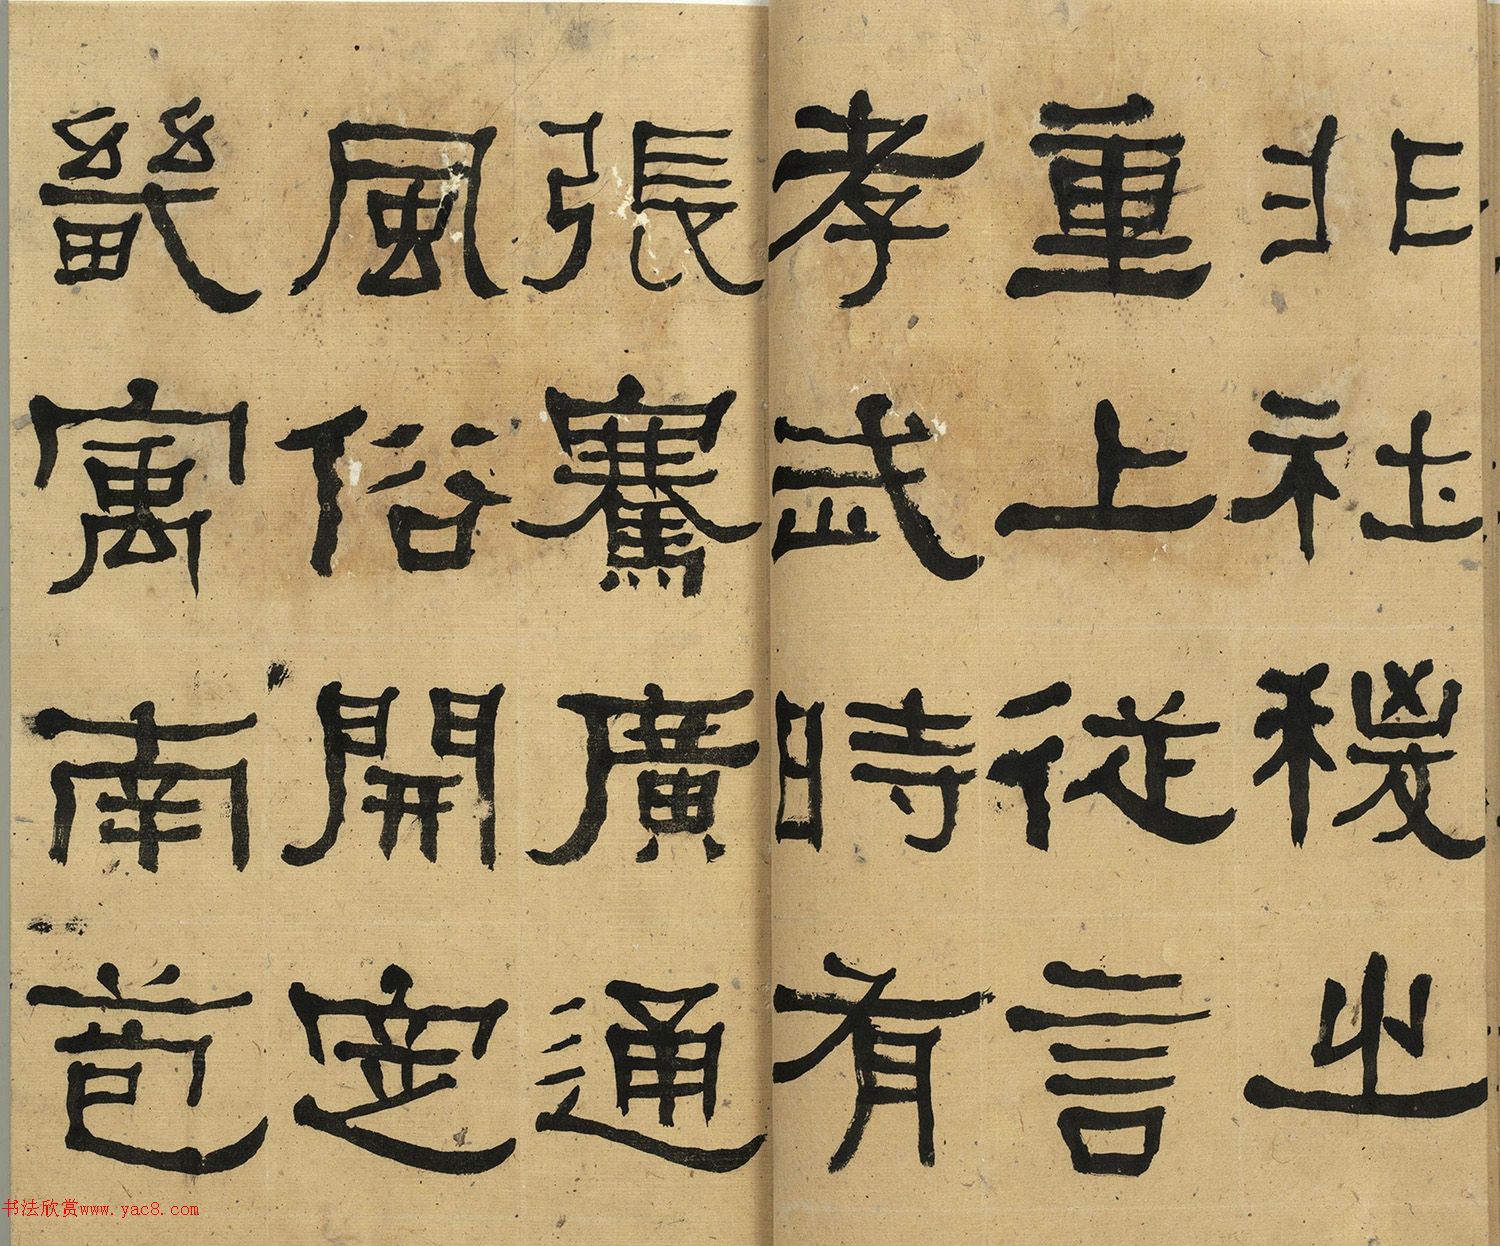 非社稷之
重上從言
孝武時有
張騫廣通
風俗開定
畿寓南苞
书法欣赏www.yac8.com